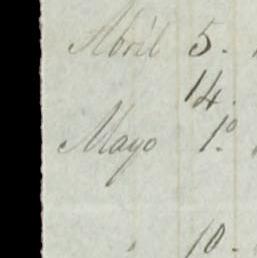 Abril 5.
14.
Mayo 1.º
10.